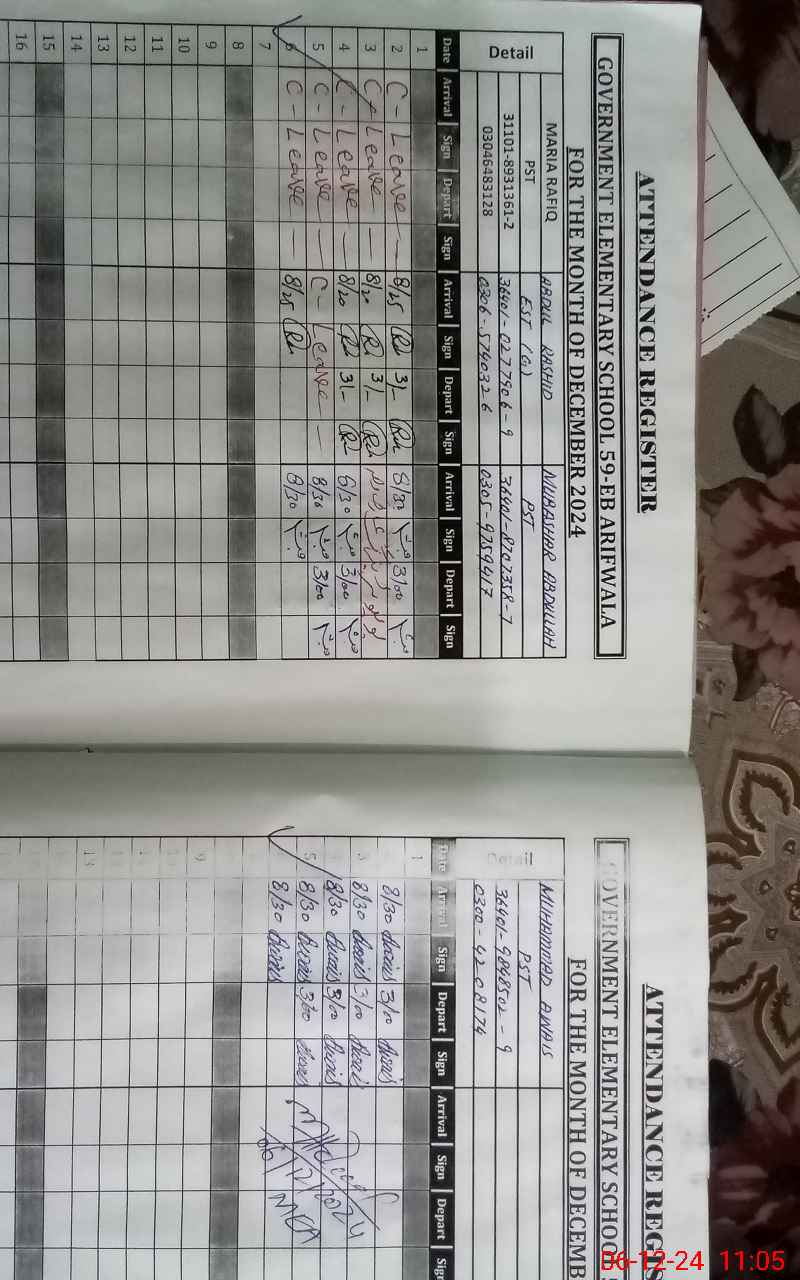 ATTENDANCE REGISTER
GOVERNMENT ELEMENTARY SCHOOL 59-EB ARIFWALA
FOR THE MONTH OF DECEMBER 2024
Detail MARIA RAFIQ ABDUL RASHID MUBASHAR ABDULLAH
PST EST (G) PST
31101-8931361-2 36401-0277906-9 36401-8707358-7
03046483128 0306-5740326 0305-9759417
Date Arrival Sign Depart Sign Arrival Sign Depart Sign Arrival Sign Depart Sign
1
2 C - Leave — 8/25 3/- 8/30 3/00
3 C - Leave — 8/20 3/-
4 C - Leave — 8/20 3/- 8/30 3/00
5 C - Leave — C - Leave — 8/30 3/00
6 C - Leave — 8/25 8/30
7
8
9
10
11
12
13
14
15
16
ATTENDANCE REGIS
GOVERNMENT ELEMENTARY SCHOOL
FOR THE MONTH OF DECEMB
Detail MUHAMMAD AWAIS
PST
36401-9848502-9
0300-4208174
Date Arrival Sign Depart Sign Arrival Sign Depart Sign
1
8/30 Awais 3/00 Awais
3 8/30 Awais 3/00 Awais
8/30 Awais 3/00 Awais
5 8/30 Awais 3/00 Awais
8/30 Awais
9
13
MEA
06-12-24 11:05